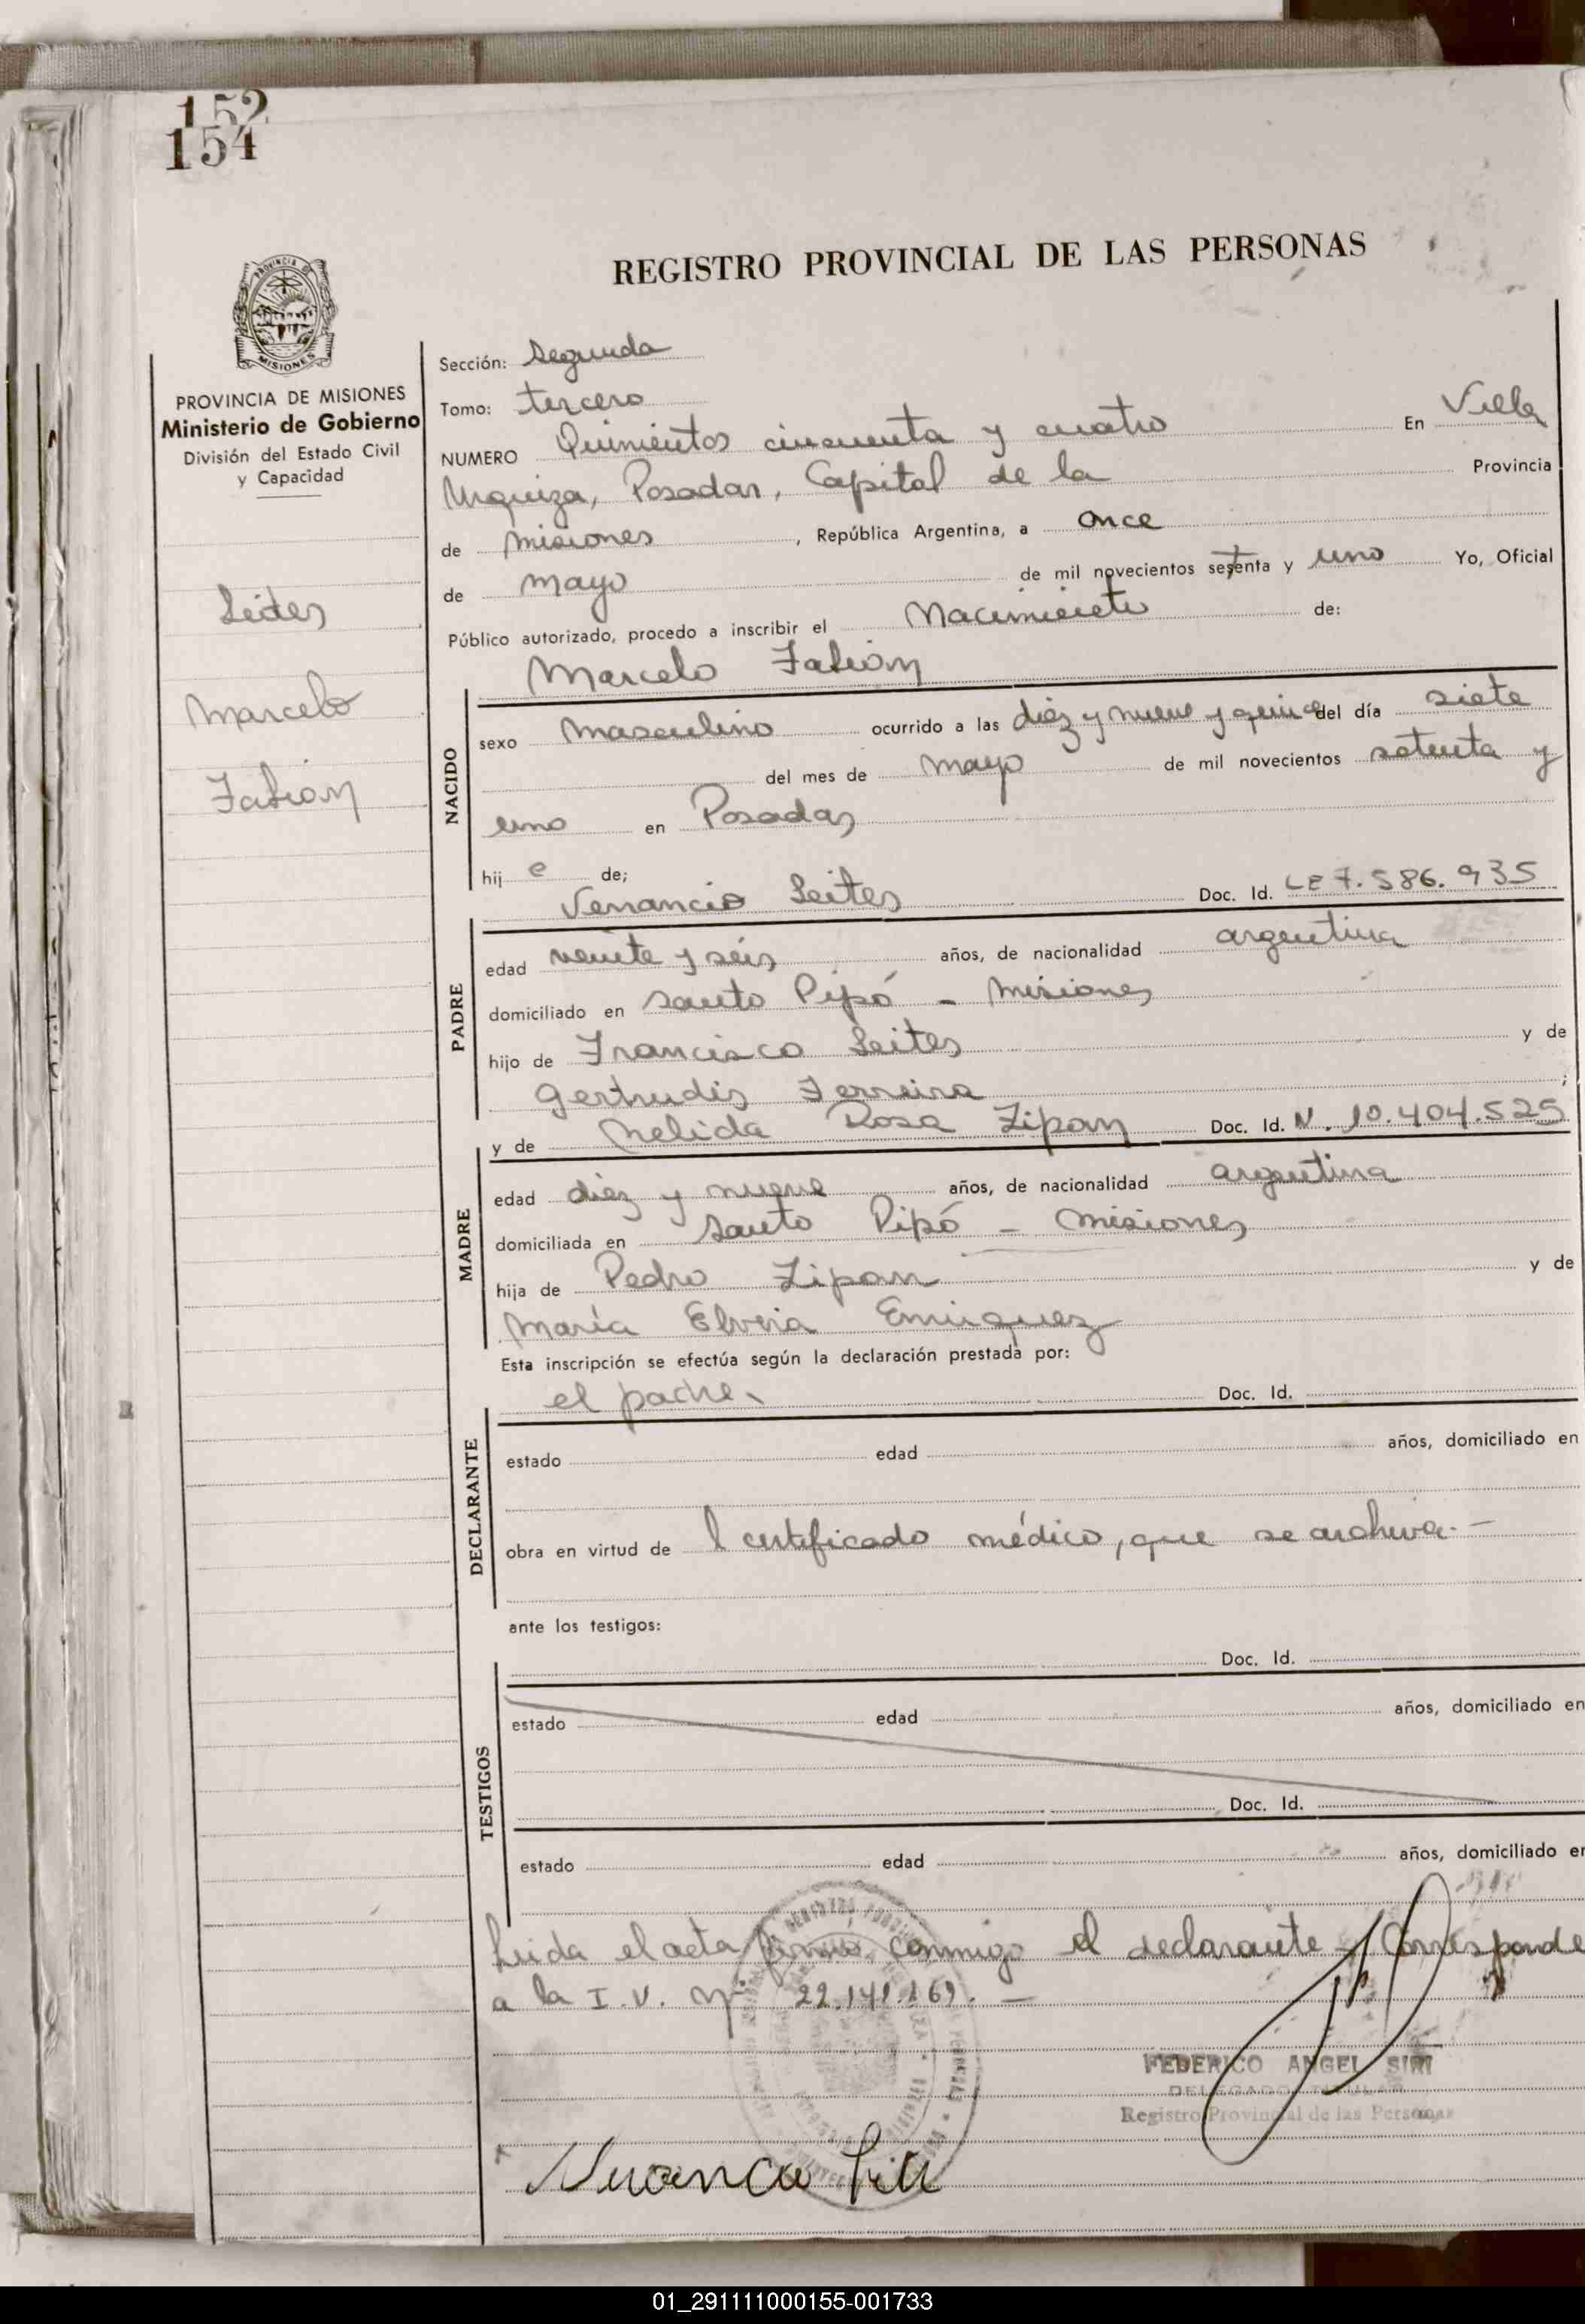 152
154
REGISTRO PROVINCIAL DE LAS PERSONAS
PROVINCIA DE MISIONES
Ministerio de Gobierno
División del Estado Civil
y Capacidad
Leites
Marcelo
Fabián
Sección: Segunda
Tomo: tercero
NUMERO Quinientos cincuenta y cuatro En Villa
Urquiza, Posadas, Capital de la Provincia
de Misiones, República Argentina, a once
de mayo de mil novecientos setenta y uno Yo, Oficial
Público autorizado, procedo a inscribir el Nacimiento de:
Marcelo Fabián
NACIDO
sexo masculino ocurrido a las diez y nueve y quince del día siete
del mes de mayo de mil novecientos setenta y
uno en Posadas
hij o de;
Venancio Leites Doc. Id. LE 7.586.935
PADRE
edad veinte y séis años, de nacionalidad argentina
domiciliado en Santo Pipó - Misiones
hijo de Francisco Leites y de
Gertrudis Ferreira ;
y de Nelida Rosa Zipan Doc. Id. N. 10.404.525
MADRE
edad diez y nueve años, de nacionalidad argentina
domiciliada en Santo Pipó - Misiones
hija de Pedro Zipan y de
María Elvira Enriquez
Esta inscripción se efectúa según la declaración prestada por:
el padre. Doc. Id.
DECLARANTE
estado edad años, domiciliado en
obra en virtud de l certificado médico, que se archiva.-
ante los testigos:
Doc. Id.
TESTIGOS
estado edad años, domiciliado en
Doc. Id.
estado edad años, domiciliado en
Leida el acta firmó conmigo el declarante - Corresponde
a la I.V. Nº 22.141.169. -
FEDERICO ANGEL SIRI
DELEGADO TITULAR
Registro Provincial de las Personas
01_291111000155-001733